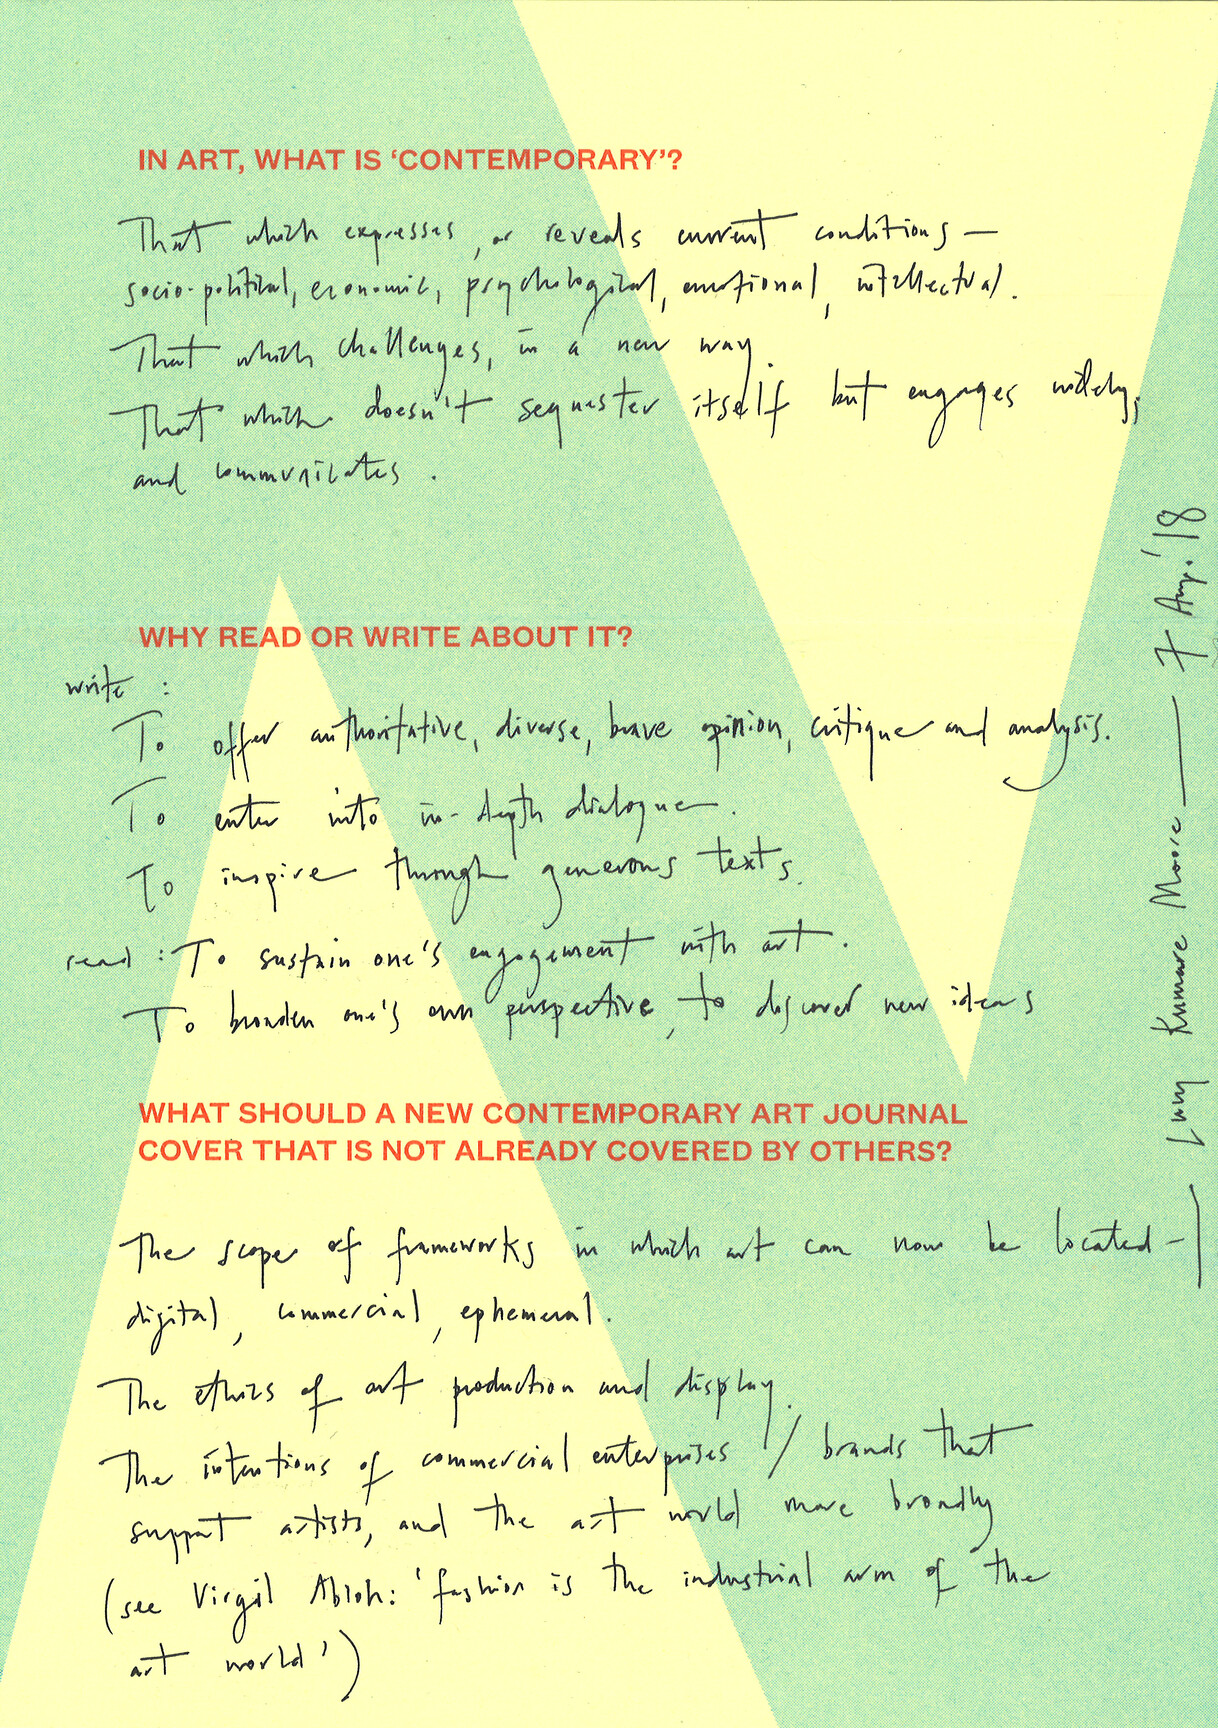 IN ART, WHAT IS ‘CONTEMPORARY’?
That which expresses, or reveals current conditions —
socio-political, economic, psychological, emotional, intellectual.
That which challenges, in a new way.
That which doesn't sequester itself but engages widely,
and communicates.
WHY READ OR WRITE ABOUT IT?
write :
To offer authoritative, diverse, brave opinion, critique and analysis.
To enter into in-depth dialogue.
To inspire through generous texts.
read : To sustain one's engagement with art.
To broaden one's own perspective, to discover new ideas
WHAT SHOULD A NEW CONTEMPORARY ART JOURNAL
COVER THAT IS NOT ALREADY COVERED BY OTHERS?
The scope of frameworks in which art can now be located —
digital, commercial, ephemeral.
The ethics of art production and display.
The intentions of commercial enterprises / brands that
support artists, and the art world more broadly
(see Virgil Abloh: 'fashion is the industrial arm of the
art world')
— Lucy Kumara Moore — 7 Aug. '18